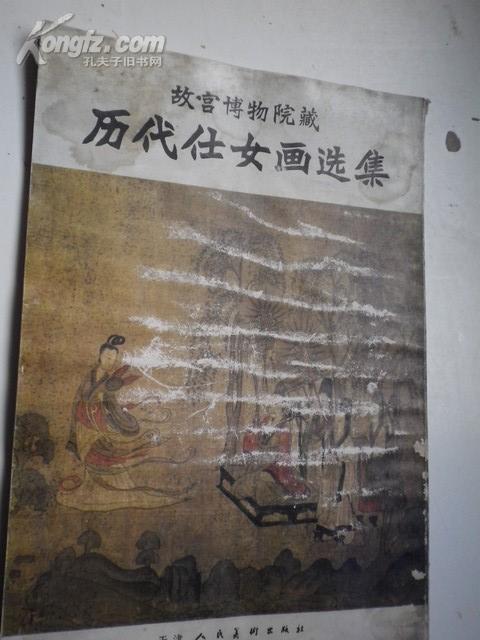 Kongfz.com
孔夫子旧书网
故宫博物院藏
历代仕女画选集
天津人民美术出版社